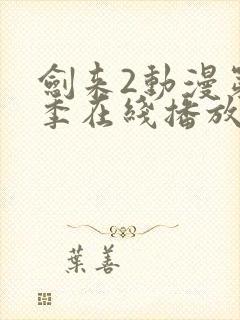 劍来2動漫第
季在綫播放
葉善